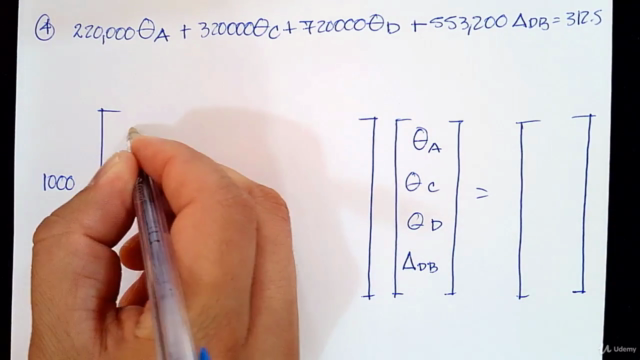 ④ 220,000θA + 320000θC + 720000θD + 553,200 ΔDB = 312.5
1000
θA
θC
θD
ΔDB
=
Udemy